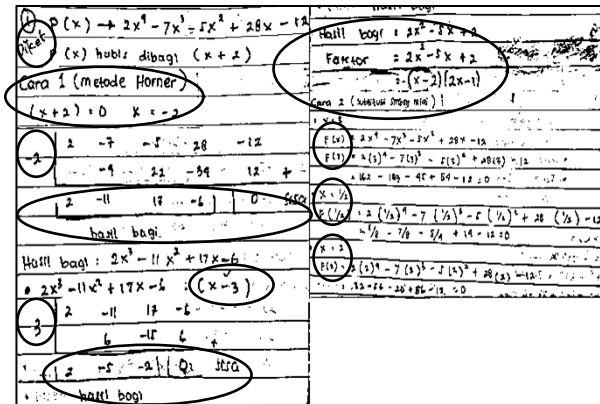 1
Diket
P(x) → 2x⁴ - 7x³ - 5x² + 28x - 12
P(x) habis dibagi (x+2)
Cara 1 (metode Horner)
(x+2) = 0 x = -2
-2 2 -7 -5 28 -12
-4 22 -34 12 +
2 -11 17 -6 0 sisa
hasil bagi
Hasil bagi : 2x³ - 11x² + 17x - 6
• 2x³ - 11x² + 17x - 6 : (x-3)
3 2 -11 17 -6
6 -15 6 +
2 -5 -2 0 sisa
hasil bagi
Hasil bagi = 2x² - 5x + 2
Faktor = 2x² - 5x + 2
= (x-2)(2x-1)
Cara 2
x = 3
F(x) = 2x⁴ - 7x³ - 5x² + 28x - 12
F(3) = 2(3)⁴ - 7(3)³ - 5(3)² + 28(3) - 12
= 162 - 189 - 45 + 84 - 12 = 0
x = 1/2
(1/2) = 2(1/2)⁴ - 7(1/2)³ - 5(1/2)² + 28(1/2) - 12
= 1/8 - 7/8 - 5/4 + 14 - 12 = 0
x = 2
F(2) = 2(2)⁴ - 7(2)³ - 5(2)² + 28(2) - 12
= 32 - 56 - 20 + 56 - 12 = 0